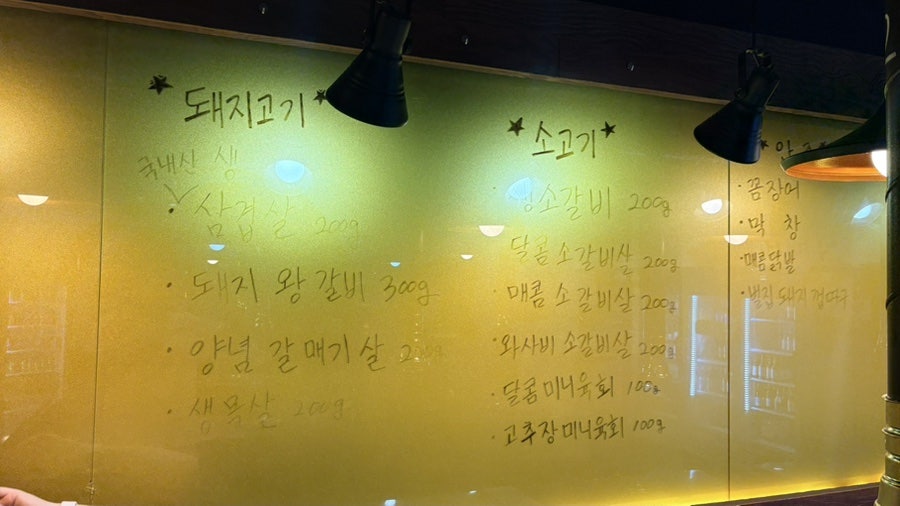 ★ 돼지고기 ★
국내산 생
· 삼겹살 200g
· 돼지 왕갈비 300g
· 양념 갈매기살
· 생목살 200g
★ 소고기 ★
소갈비 200g
달콤소갈비살 200g
· 매콤소갈비살 200g
· 와사비 소갈비살 200g
· 달콤미니육회 100g
· 고추장미니육회 100g
· 꼼장어
· 막창
· 매콤닭발
· 벌집돼지껍데기